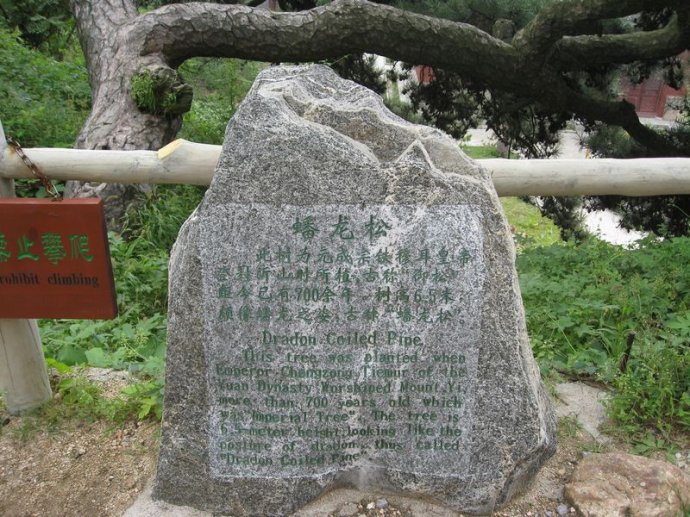 禁止攀爬
Prohibit climbing
蟠龙松
此树为元成宗铁穆耳皇帝
登封沂山时所植,古称"御松"
距今已有700余年,树高6.5米,
颇像蟠龙之姿,古称"蟠龙松"
Dradon Coiled Pipe
This tree was planted when
Emperor Chengzong Tiemur of the
Yuan Dynasty Worshiped Mount.Yi,
more than 700 years old which
was"Imperial Tree". The tree is
6.5-meter height,looking like the
posture of dradon, thus called
"Dradon Coiled Pine"